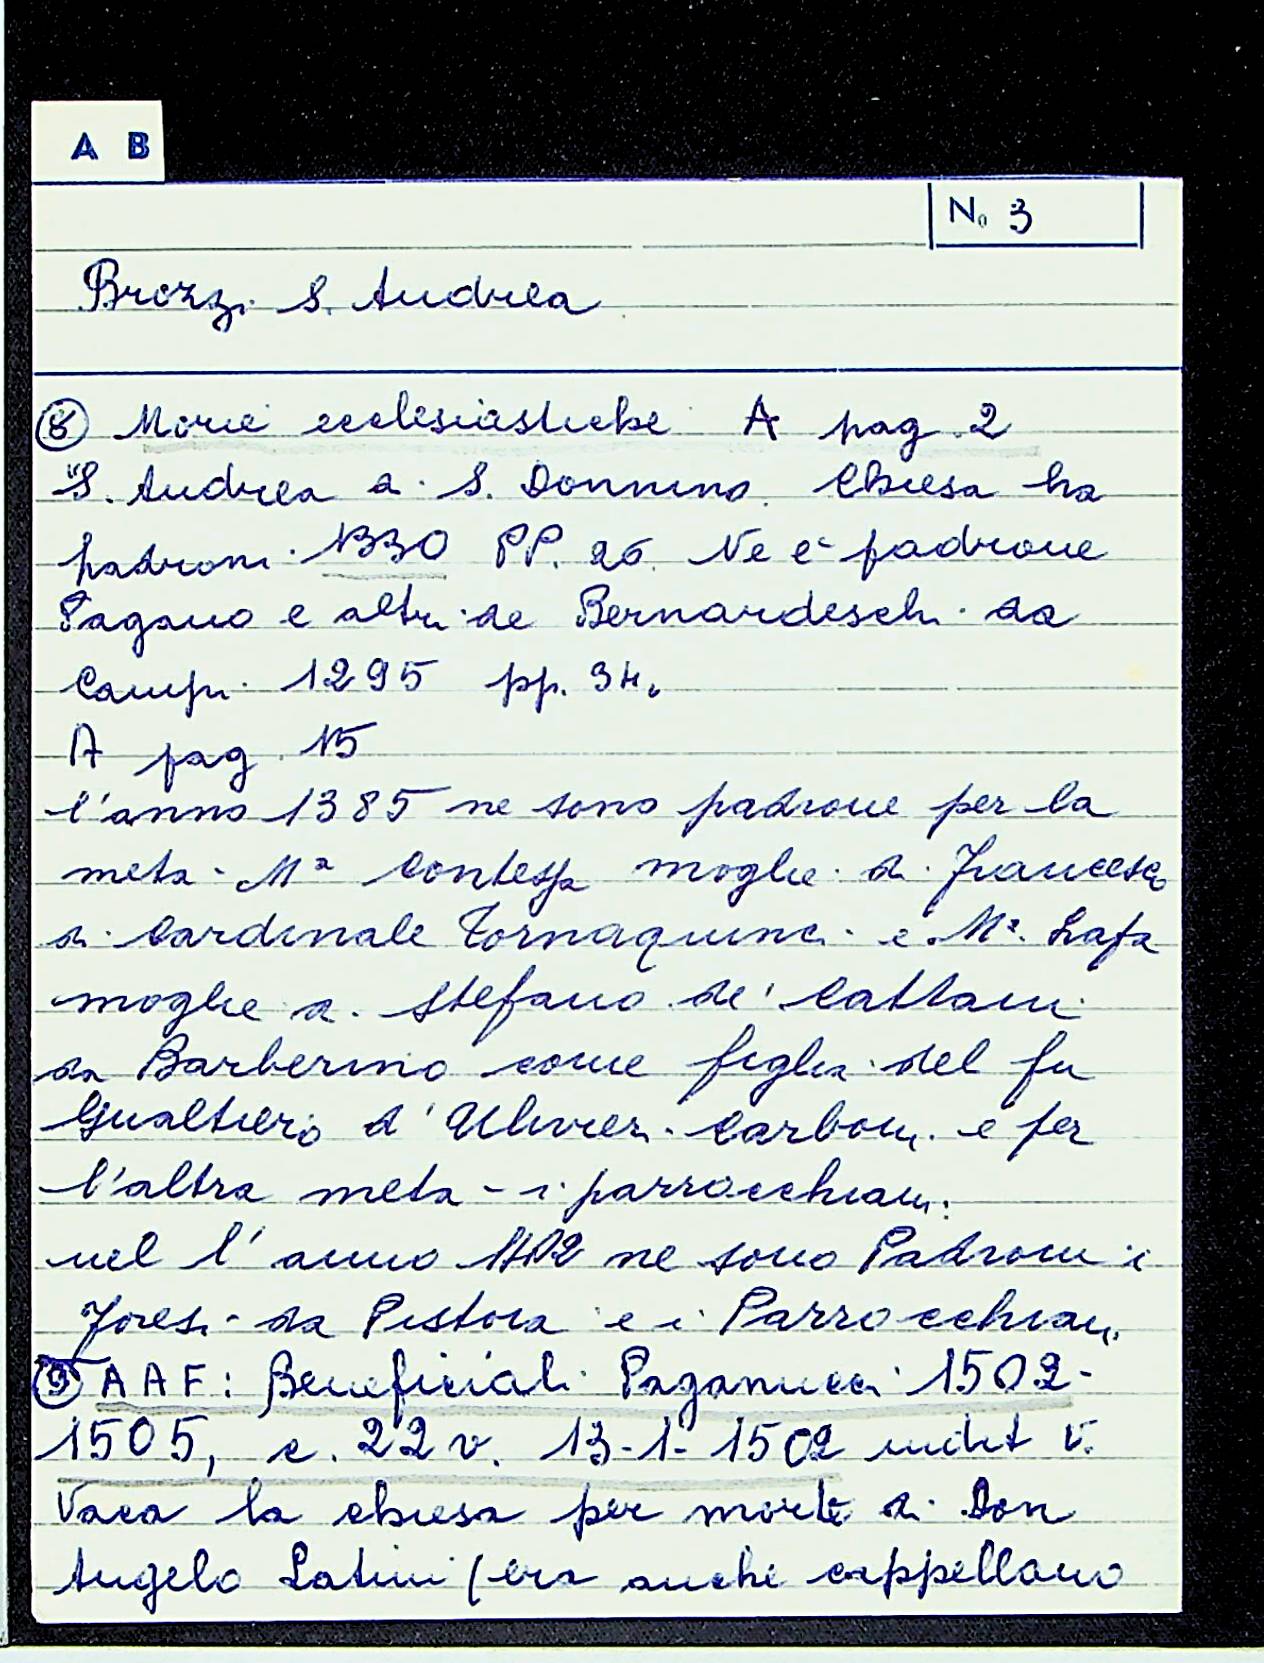 A B
No 3
Brozzi S. Andrea
⑧ Morie ecclesiastiche A pag. 2
"S. Andrea a S. Donnino. Chiesa ha
padroni. 1330 PP. 26. Ne è padrone
Pagano e altri de Bernardeschi da
Campi. 1295 pp. 34.
A pag. 15
l'anno 1385 ne sono padrone per la
metà Mª Contessa moglie di Francesco
di Cardinale Tornaquinci e Mª Lapa
moglie di Stefano de' Cattani
da Barberino come figlie del fu
Gualtiero d'Ulivieri Carboni e per
l'altra metà i parrocchiani.
nel l'anno 1402 ne sono Padroni i
da Pistoia e i Parrocchiani,
⑨ AAF: Beneficiali Paganucci 1502-
1505, c. 22 v. 13-1-1502 indit V.
Vaca la chiesa per morte di Don
Angelo Latini (era anche cappellano